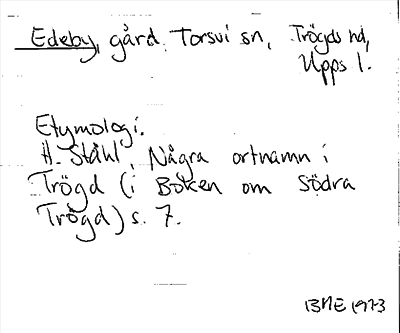 Edeby, gård. Torsvi sn, Trögds hd,
Upps l.
Etymologi.
H. Ståhl, Några ortnamn i
Trögd (i Boken om Södra
Trögd) s. 7.
BME 1973